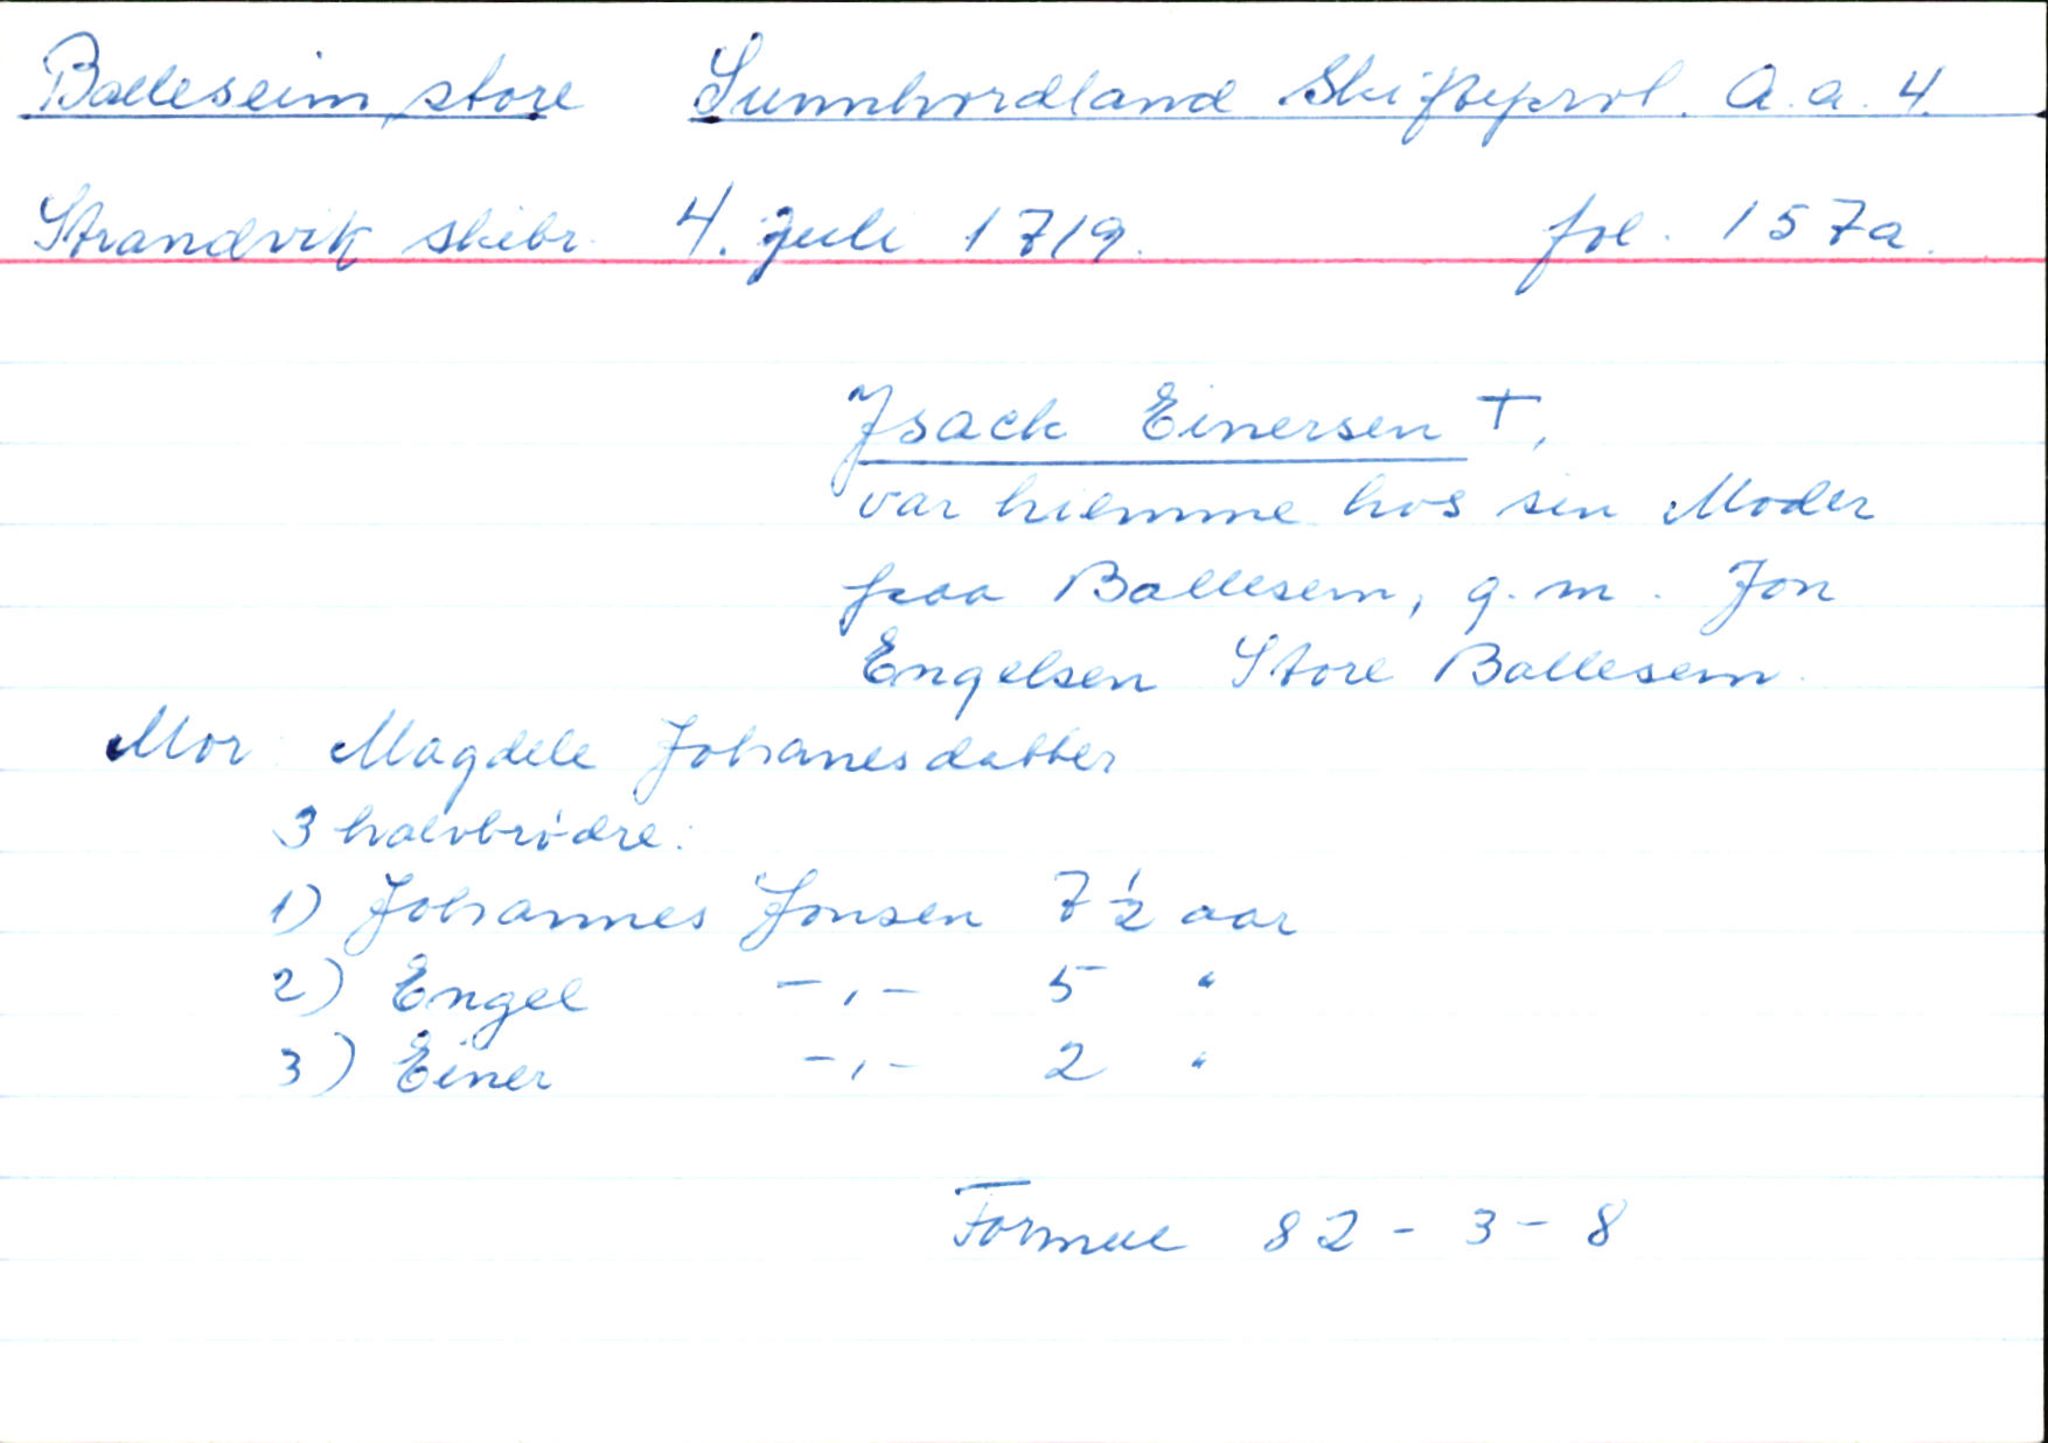 Balleseim, store Sunnhordland Skifteprot. A.a.4.
Strandvik skibr. 4. juli 1719. fol. 157a.
Isack Einersen +,
var hiemme hos sin Moder
paa Ballesem, g.m. Jon
Engelsen Store Ballesem.
Mor: Magdele Johanesdatter
3 halvbrødre:
1) Johannes Jonsen 7 1/2 aar
2) Engel -,,- 5 "
3) Einer -,,- 2 "
Formue 82 - 3 - 8